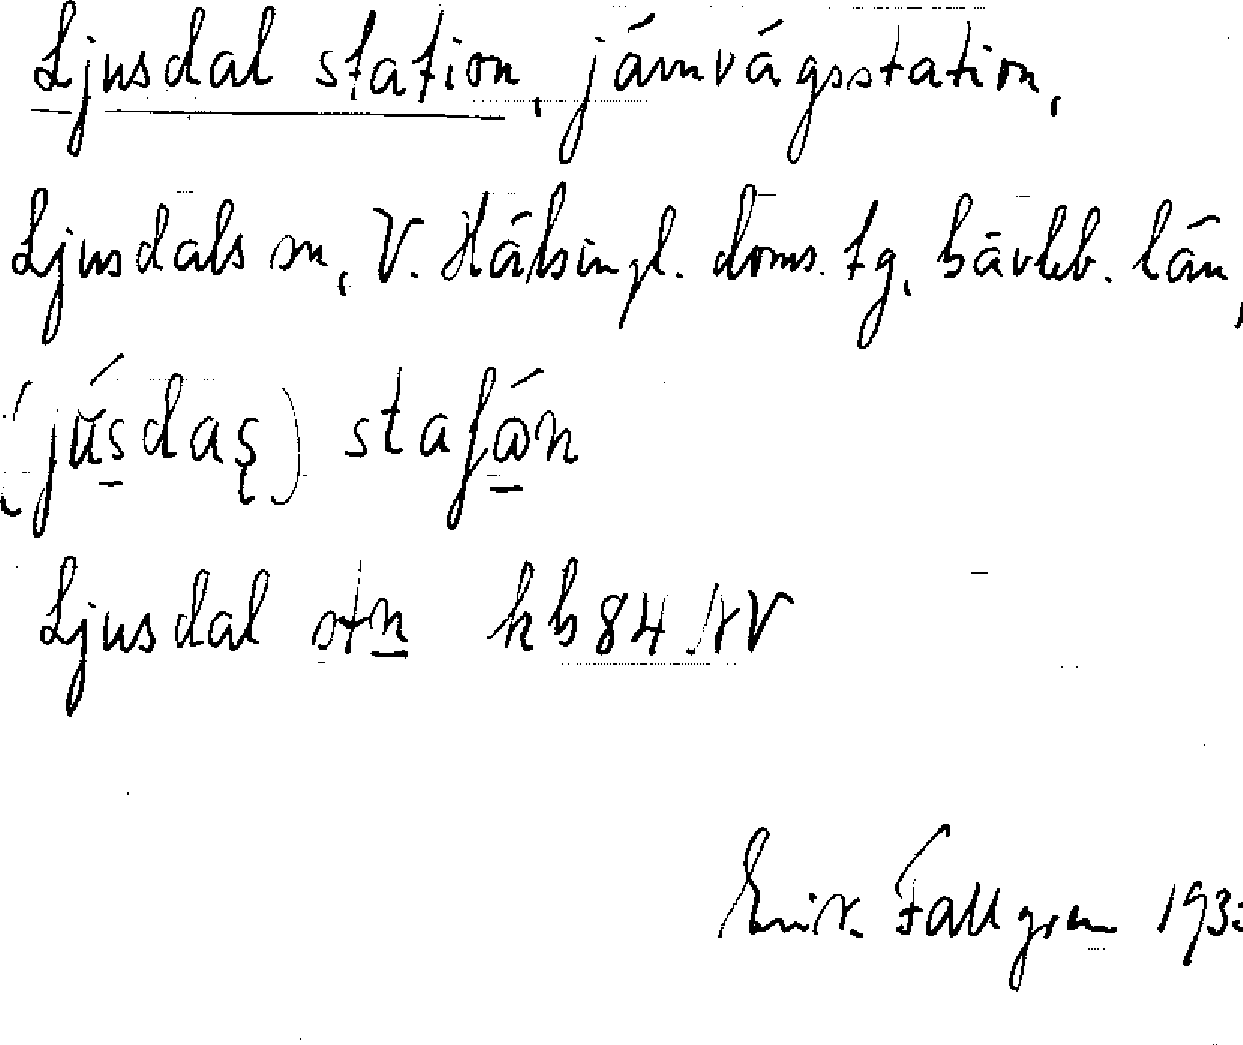 Ljusdal station, järnvägsstation,
Ljusdals sn, V. Hälsingl. doms. tg, Gävleb. län,
(jús̱daș) staʃá̱n
Ljusdal stn kb 84 NV
Erik Fallgren 193